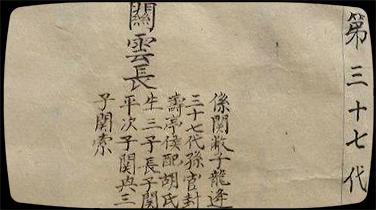 第三十七代
關雲長
係關敕子龍逄
三十七代孫官封
壽亭侯配胡氏
生三子長子關
平次子關興三
子關索